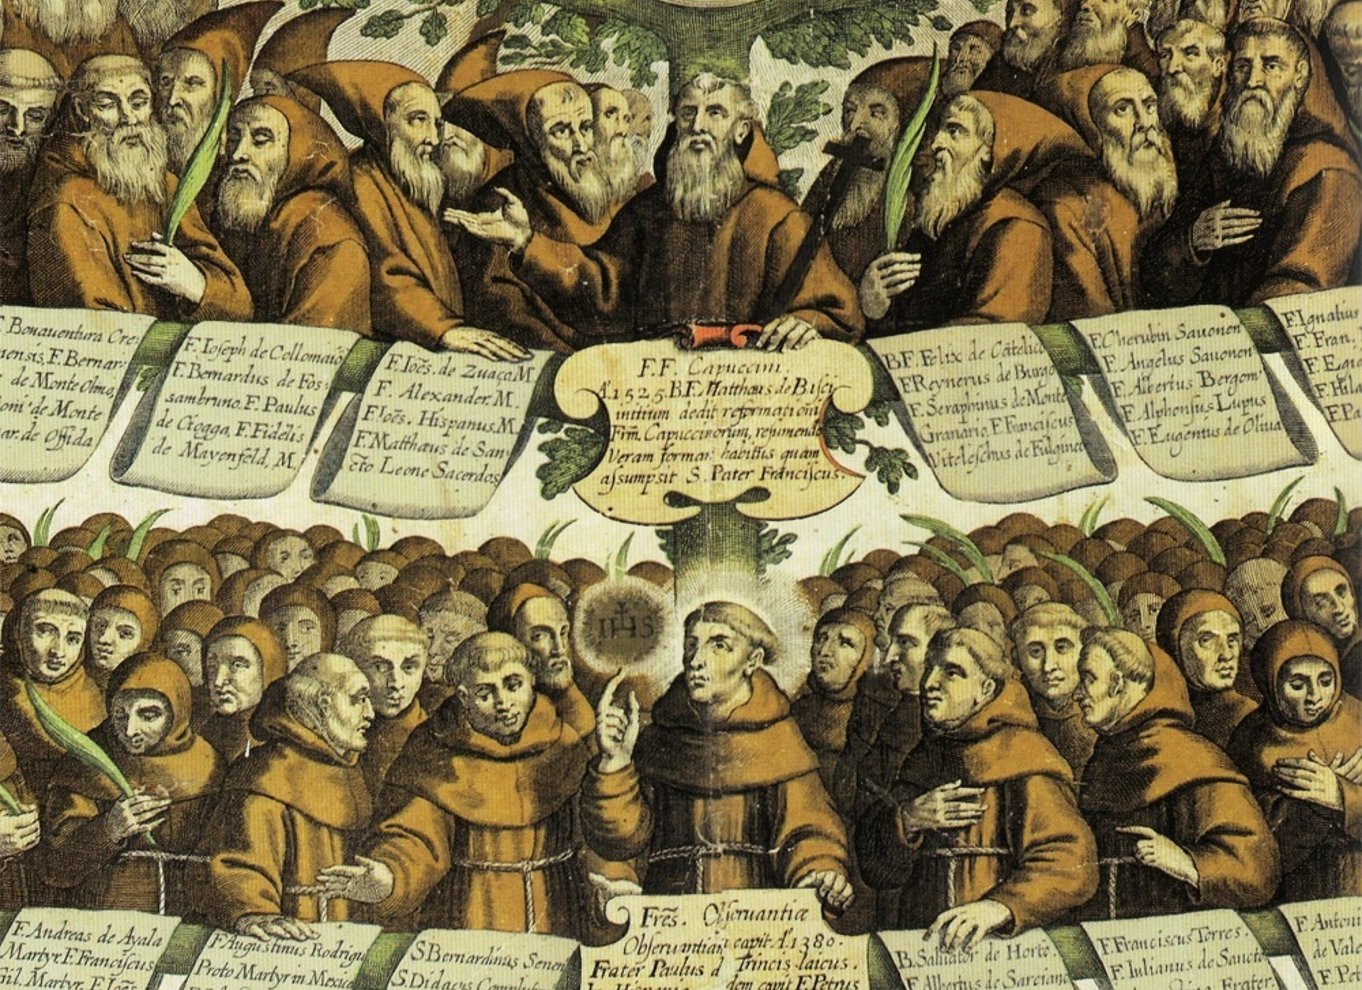 F. Bonauentura Cre-
nensis, F. Bernar-
de Monte Olmo,
oni' de Monte
ar. de Offida
F. Ioseph de Collomaio
F. Bernardus de Fos-
sambruno. F. Paulus
de Cioaga, F. Fidelis
de Mayenfeld, M.
F. Ioẽs. de Zuaço M.
F. Alexander. M.
F. Ioẽs. Hispanus M.
F. Matthæus de San-
cto Leone Sacerdos
F.F. Capuccini.
A. 1525. B.F. Matthæus de Bisci
initium dedit reformationi
Frm̃. Capuccinorum, resumendo
Veram formam habitus quam
assumpsit S. Pater Franciscus.
B.F. Felix de Cãtelici
F. Reynerus de Burgo
F. Seraphinus de Monte
Granario, F. Franciscus
Viteleschus de Fulginea
F. Cherubin Sauonen
F. Angelus Sauonen
F. Albertus Bergom'
F. Alphonsus Lupus
F. Eugenius de Oliua
F. Ignatius
F. Fran.
F. Hila
IHS
F. Andreas de Ayala
Martyr F. Franciscus
Gil. Martyr. F. Ioẽs
F. Augustinus Rodrigu
Proto Martyr in Mexico
S. Bernardinus Senen
S. Didacus
Frẽs. Obseruantiæ
Obseruantia capit A. 1380.
Frater Paulus d Trincis laicus.
Hispania dem F. Petrus
B. Saluator de Horto.
F. Albertus de Sarciano
F. Franciscus Torres.
F. Iulianus de Sancto
Frater.
F. Antoni
de Vale
F. Pet